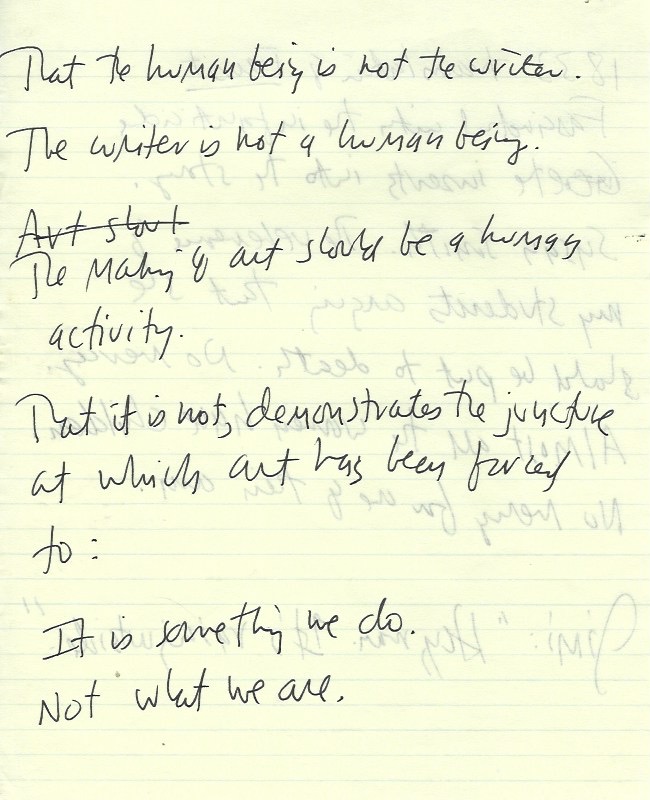 That the human being is not the writer.
The writer is not a human being.
Art shoul
The making of art should be a human
activity.
That it is not, demonstrates the juncture
at which art has been forced
to:
It is something we do.
Not what we are.